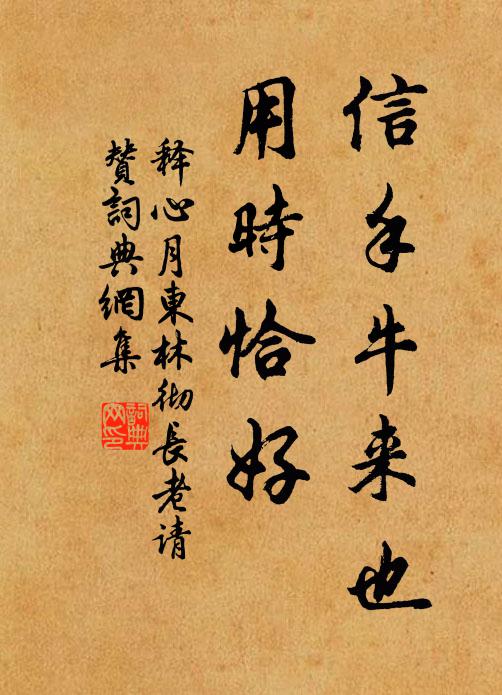 信手牛来也
用時恰好
释心月東林彻長老请
贊詞典網集
詞典
網印